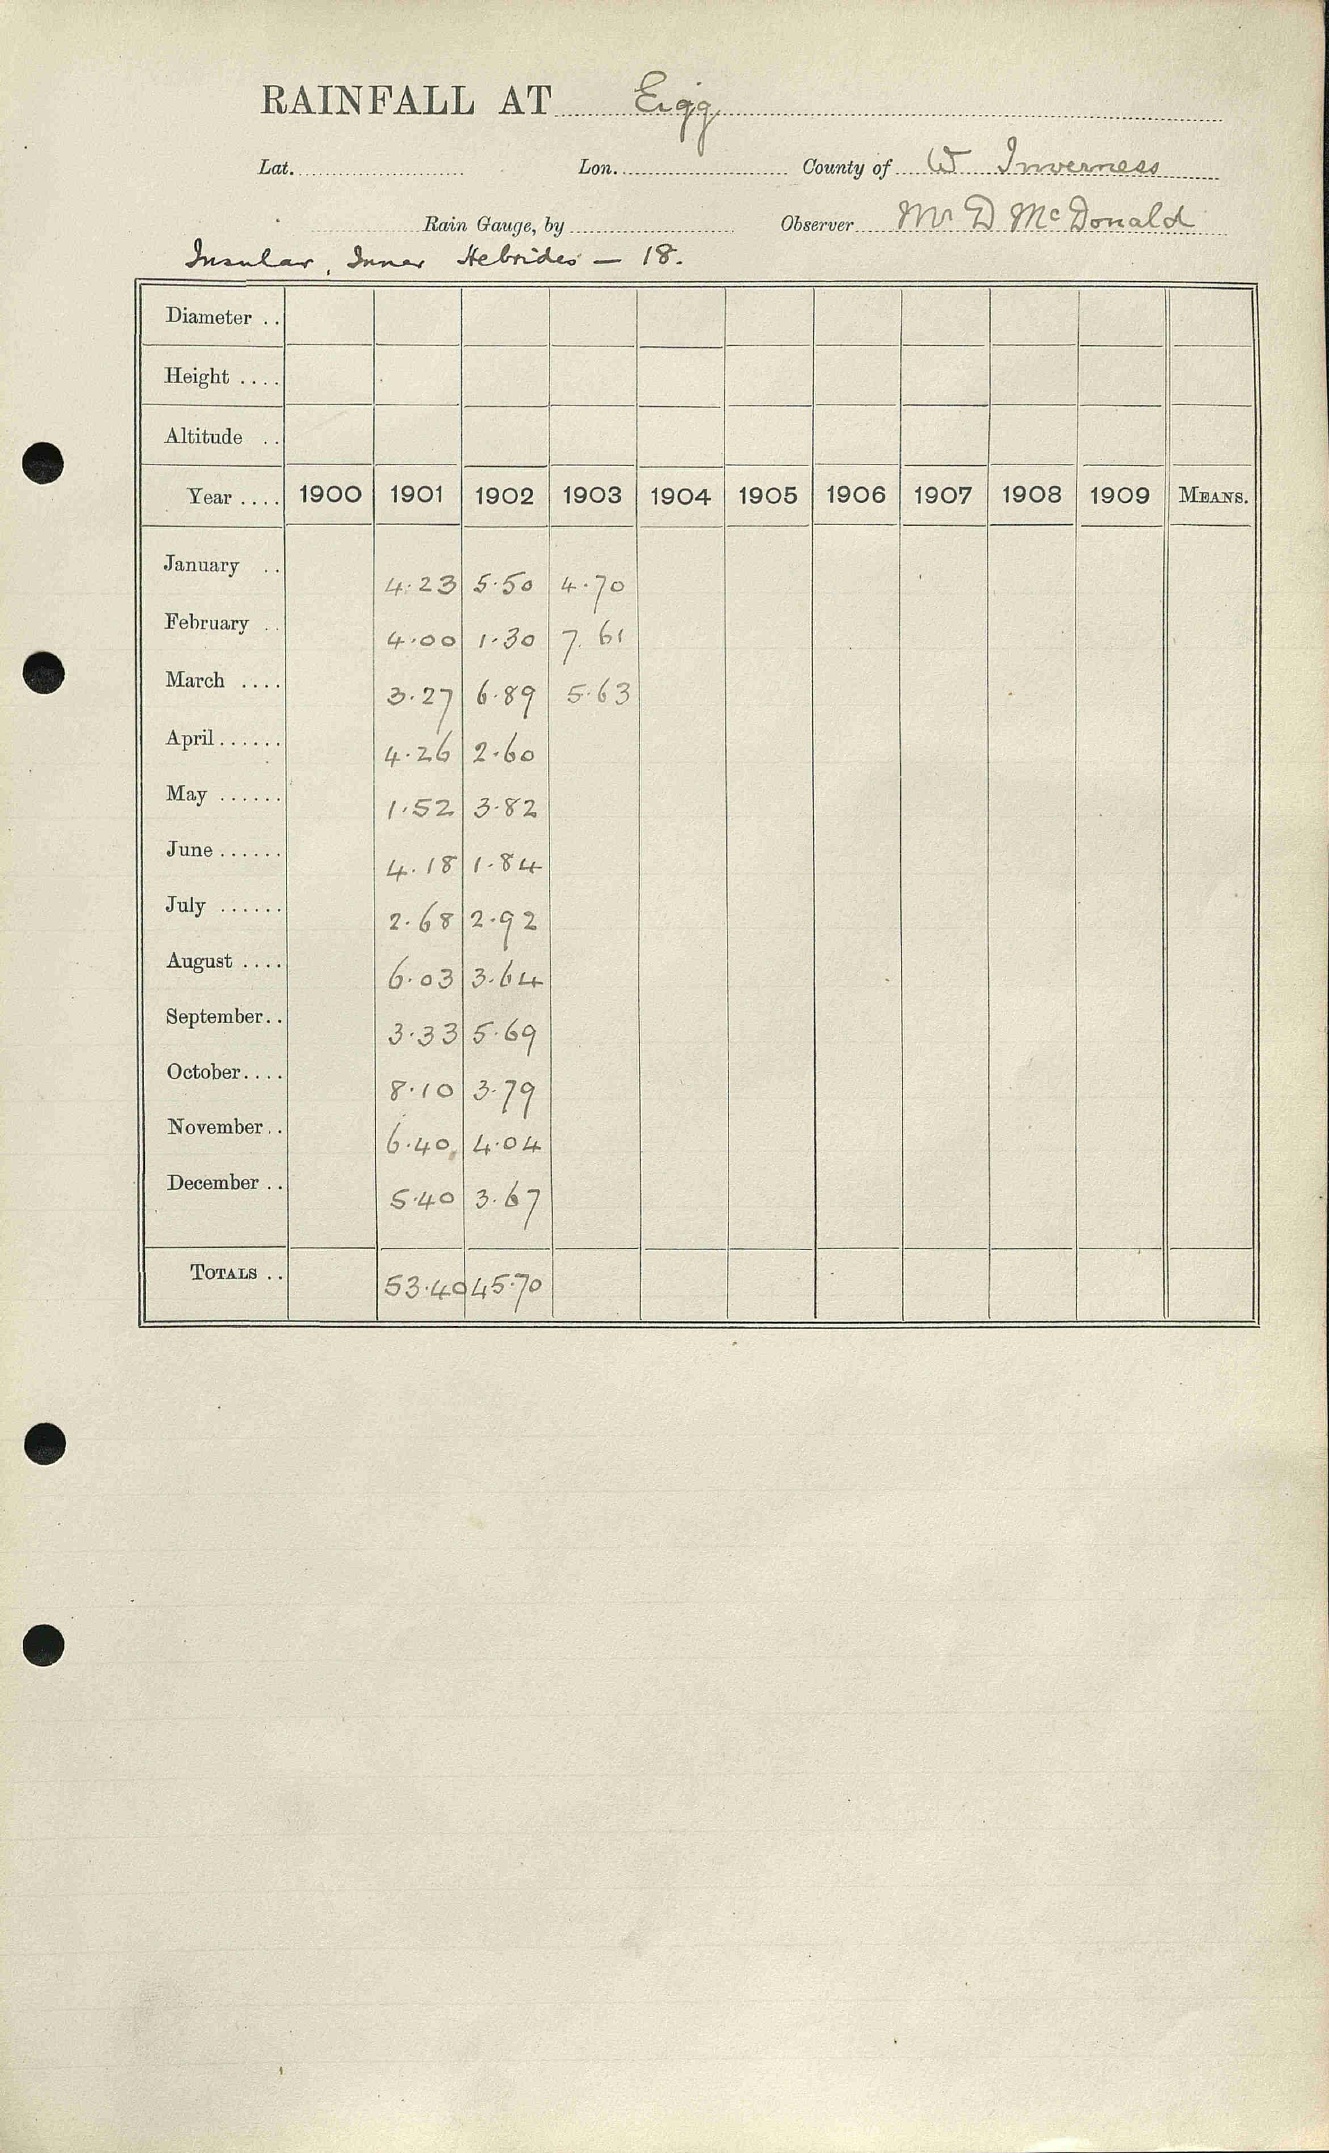 RAINFALL AT Eigg
Lat. Lon. County of W Inverness
Rain Gauge, by Observer Mr D McDonald
Insular, Inner Hebrides — 18.
Diameter ..
Height ....
Altitude ..
Year .... 1900 1901 1902 1903 1904 1905 1906 1907 1908 1909 MEANS.
January .. 4.23 5.50 4.70
February .. 4.00 1.30 7.61
March .... 3.27 6.89 5.63
April...... 4.26 2.60
May ...... 1.52 3.82
June...... 4.18 1.84
July ...... 2.68 2.92
August .... 6.03 3.64
September.. 3.33 5.69
October.... 8.10 3.79
November.. 6.40 4.04
December .. 5.40 3.67
TOTALS .. 53.40 45.70